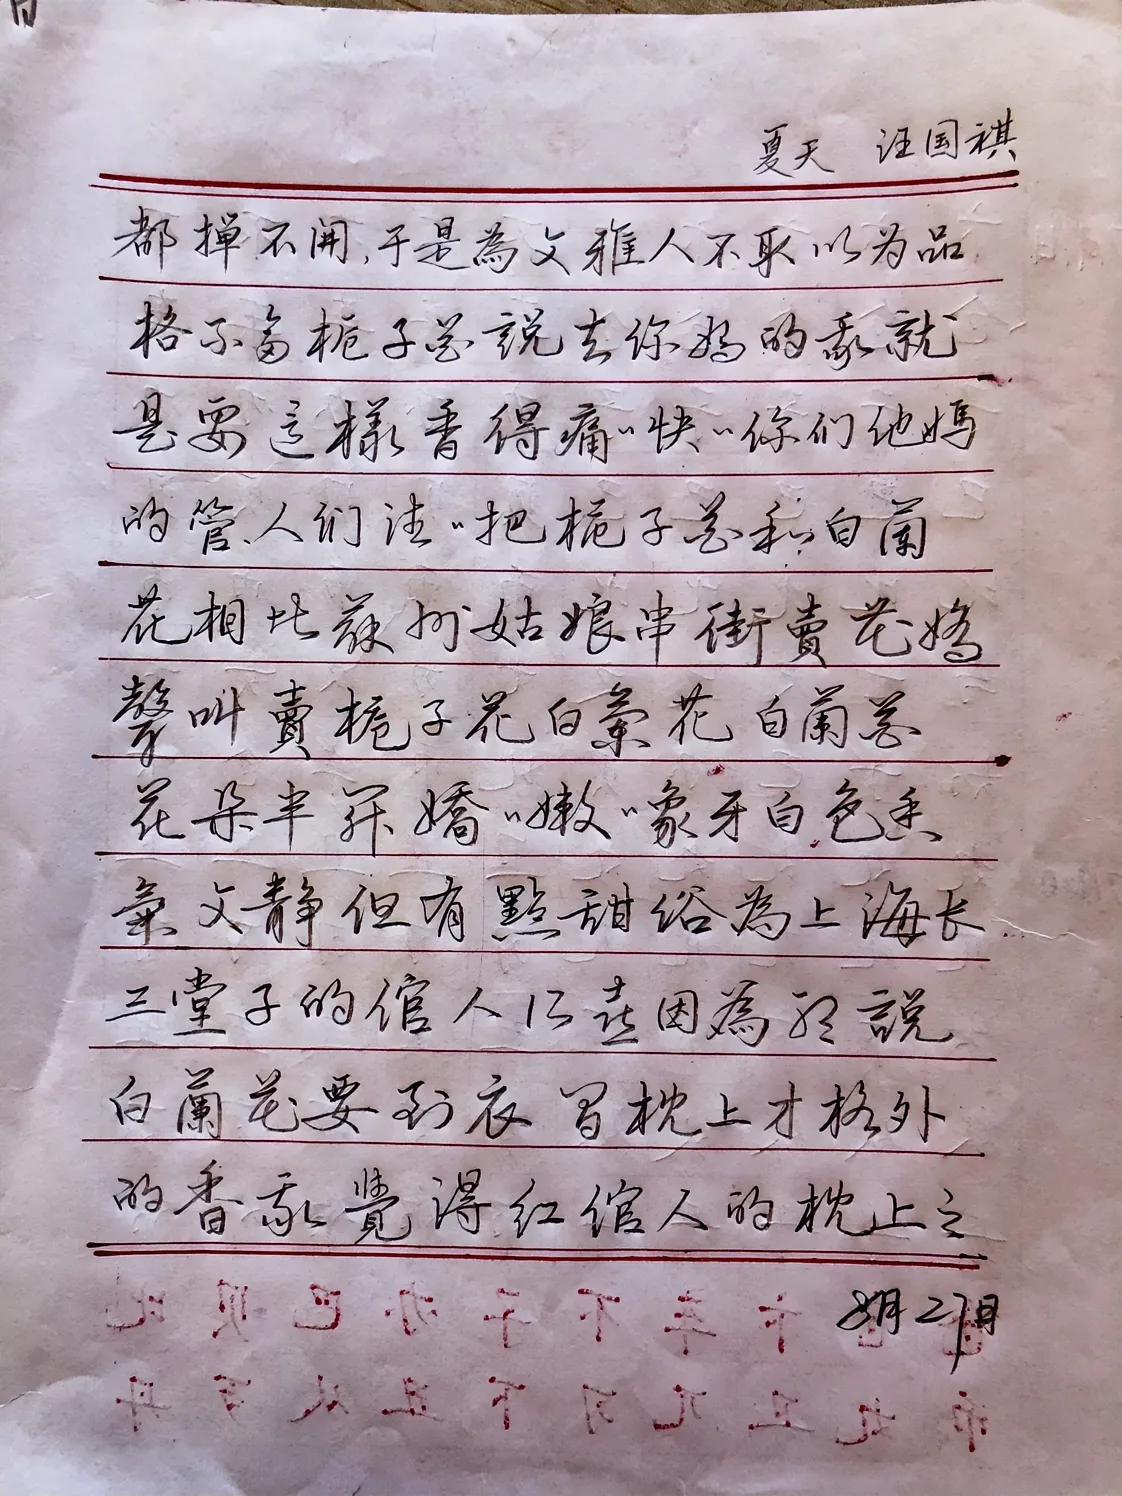 夏天 汪国祺
都掸不開,于是為文雅人不取以为品
格不高栀子花説去你妈的我就
是要這樣香得痛〃快〃你们他媽
的管、人们往〃把栀子花和白蘭
花相比苏州姑娘串街賣花嬌
聲叫賣栀子花白蘭花白蘭花
花朵半開嬌〃嫩〃象牙白色香
氣文静但有點甜俗為上海长
三堂子的倌人所喜因為听説
白蘭花要到夜間枕上才格外
的香我覺得红倌人的枕上之
8月27日
比 贝 巴 办 予 不 车 卞
丹 歹 从 丑 下 习 兀 卫 九 币